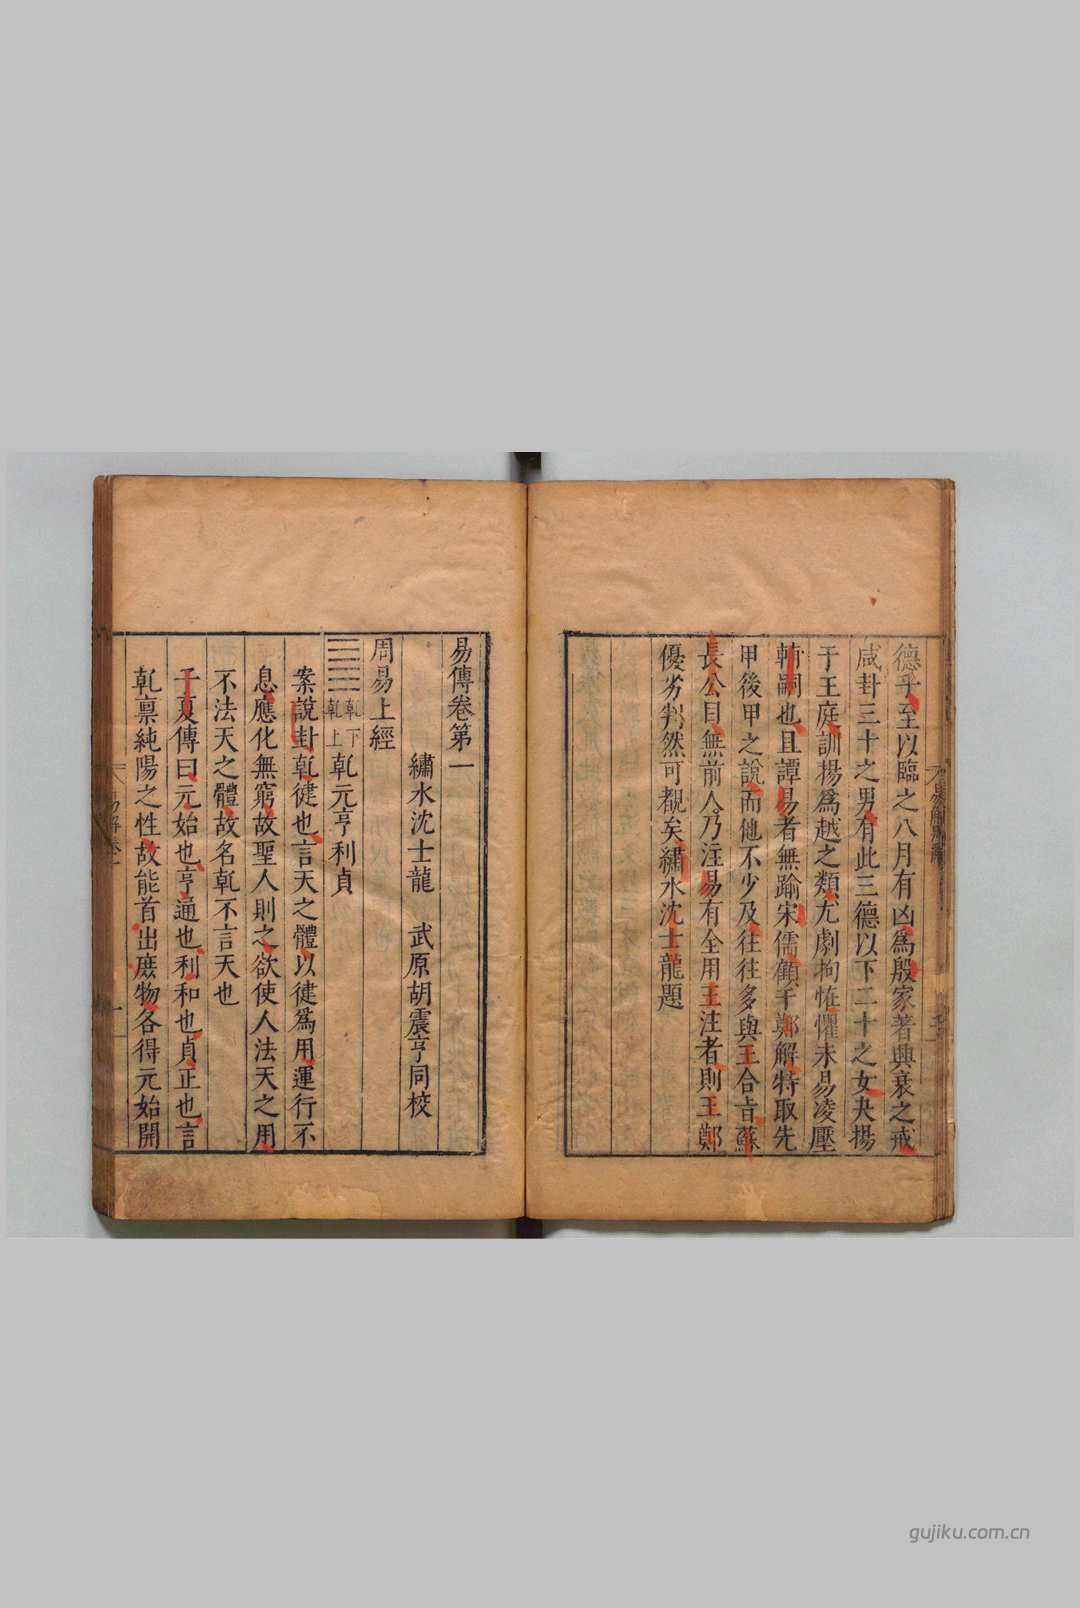 德乎至以臨之八月有凶爲殷家著興衰之戒
咸卦三十之男有此三德以下二十之女夬揚
于王庭訓揚爲越之類尤劇拘恠懼末易凌壓
輔嗣也且譚易者無踰宋儒顧于鄭解特取先
甲後甲之說而他不少及往往多與王合旨蘇
長公目無前人乃注易有全用王注者則王鄭
優劣判然可覩矣繡水沈士龍題
易傳卷第一
繡水沈士龍 武原胡震亨同校
周易上經
乹下乹上 乹元亨利貞
案說卦乹健也言天之體以健爲用運行不
息應化無窮故聖人則之欲使人法天之用
不法天之體故名乹不言天也
子夏傳曰元始也亨通也利和也貞正也言
乹禀純陽之性故能首出庶物各得元始開
gujiku.com.cn